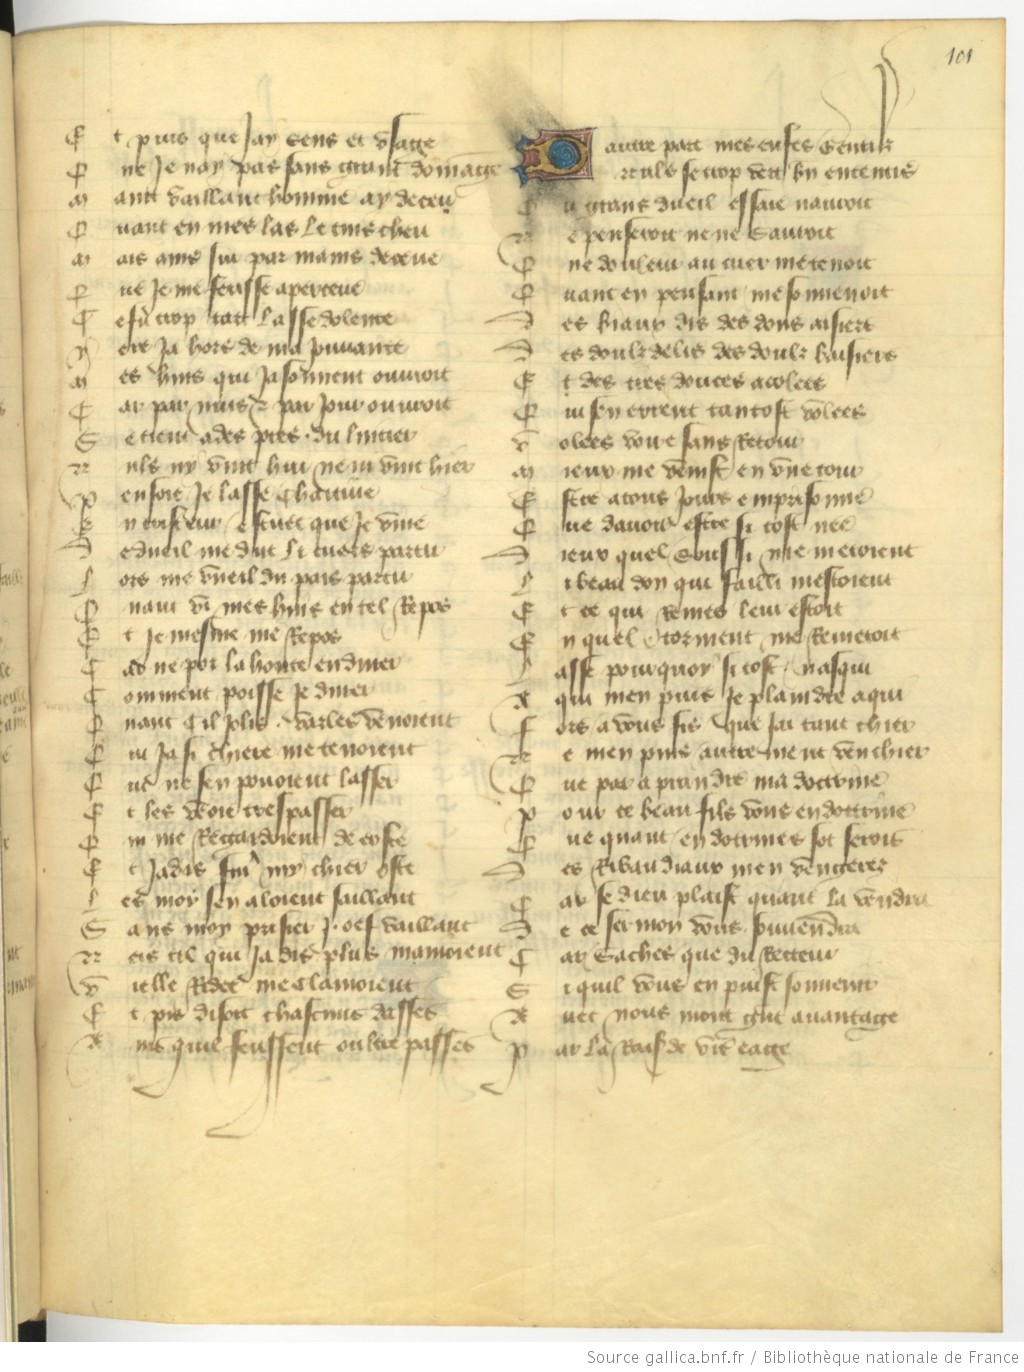 101
Et puis que Jay sens et vsage
Que Je nay pas sans grant dommage
Maint vaillant homme ay deceu
Quant en mes las le tins cheu
Mais ains fui par mains deceue
Que Je me feusse aperceue
Ce fu trop tart lasse dolente
Jere Ja hors de ma Jouuante
Mes huis qui Ja souuent ouuroit
Car par nuis et par Jour ouuroit
Se tient ades pres du lintier
Nuls ny vint hui ne ni vint hier
Pensoie Je lasse chaitiue
En tristeur esteut que Je viue
De dueil me dut li cuers partir
Lors me vueil du pais partir
Quant vi mes huis en tel Repos
Et Je mesme me Repos
Car ne poi la honte endurer
Comment poisse Je durer
Quant cil Jolis varles venoient
Qui Ja si chiere me tenoient
Que ne sen pouoient lasser
Et les veoie trespasser
Qui me Regardoient de coste
Et Jadis furent my chier oste
Les moy sen aloient saillant
Sans moy prisier J. oef vaillant
Neis cil qui Jadis plus mamoient
Vielle Ridee me clamoient
Et pis disoit chascuns dasses
Ains quil feussent oultre passes
Dautre part mes enfes gentilz
Nuls se trop nert bien ententis
Ou grans dueil essaie nauroit
Ne penseroit ne ne sauroit
Quel douleur au cuer me tenoit
Quant en pensant me souuenoit
Des biaux dis des dous aisiers
Des doulz delis des doulz baisiers
Et des tres douces acolees
Qui sen erent tantost volees
Volees voire sans Retour
Mieux me venist en vne tour
Estre a tous Jours emprisonnee
Que dauoir estre si tost nee
Dieux quel soussi me metoient
Li beau don qui failli mestoient
Et ce qui Remes leur estoit
En quel torment me Remetoit
Lasse pourquoy si tost nasqui
A qui men puis Je plaindre a qui
Fors a vous fis que Jai tant chier
Ne men puis autrement venchier
Que par aprandre ma doctrine
Pour ce beau fils vous endottrine
Que quant endotrines sot serois
Des Ribaudiaux men vengeres
Car se dieu plaist quant la vendra
De ce sermon vous souuendra
Car saches que du Retteur
Si quil vous en puist souuenir
Aues nous mont grant auantage
Par la Raison de vostre eage
Source gallica.bnf.fr / Bibliothèque nationale de France